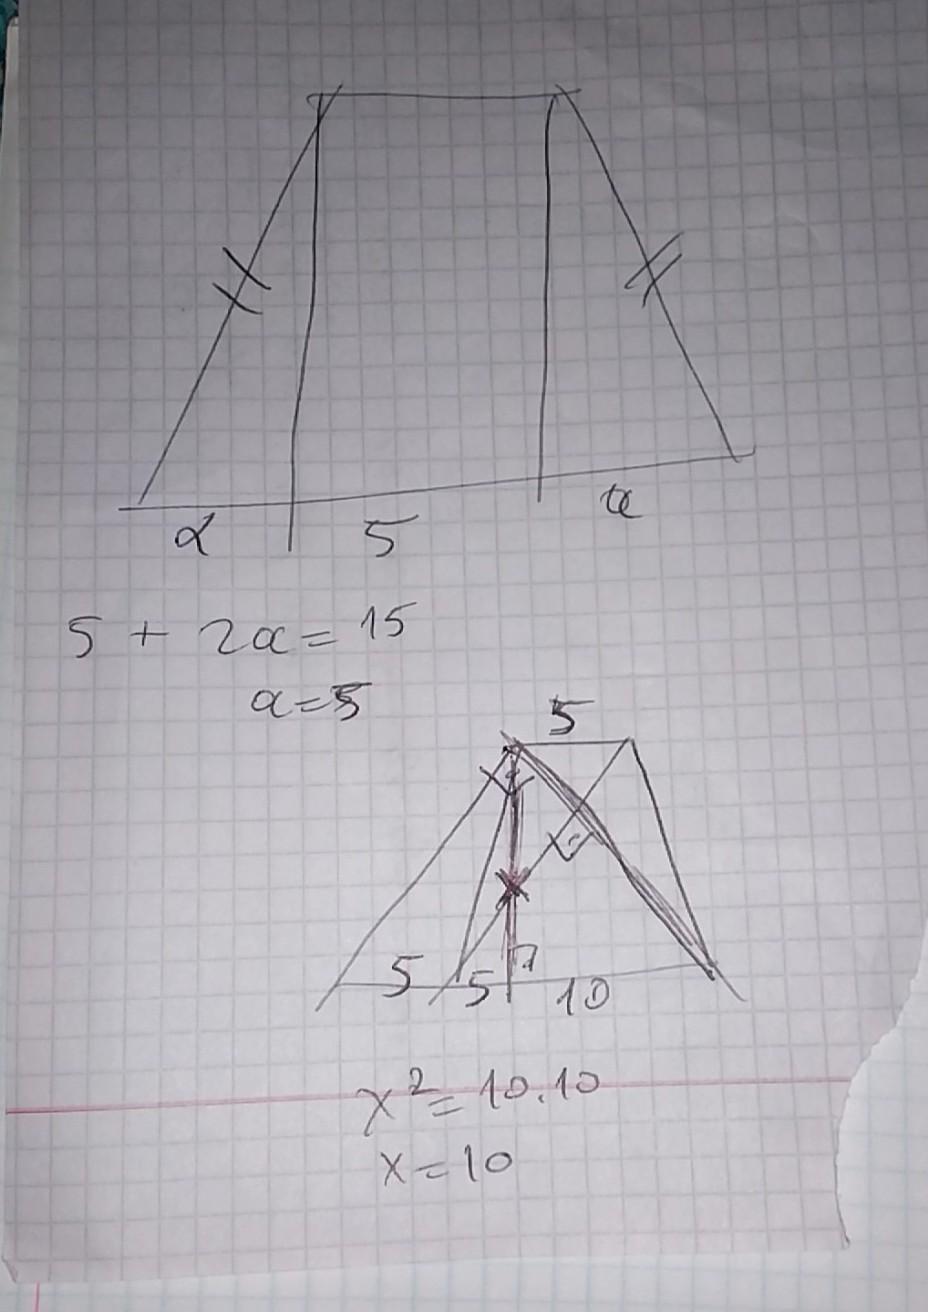 a 5 a
5 + 2a = 15
a = 5
5
x
5 5 10
x² = 10.10
x = 10